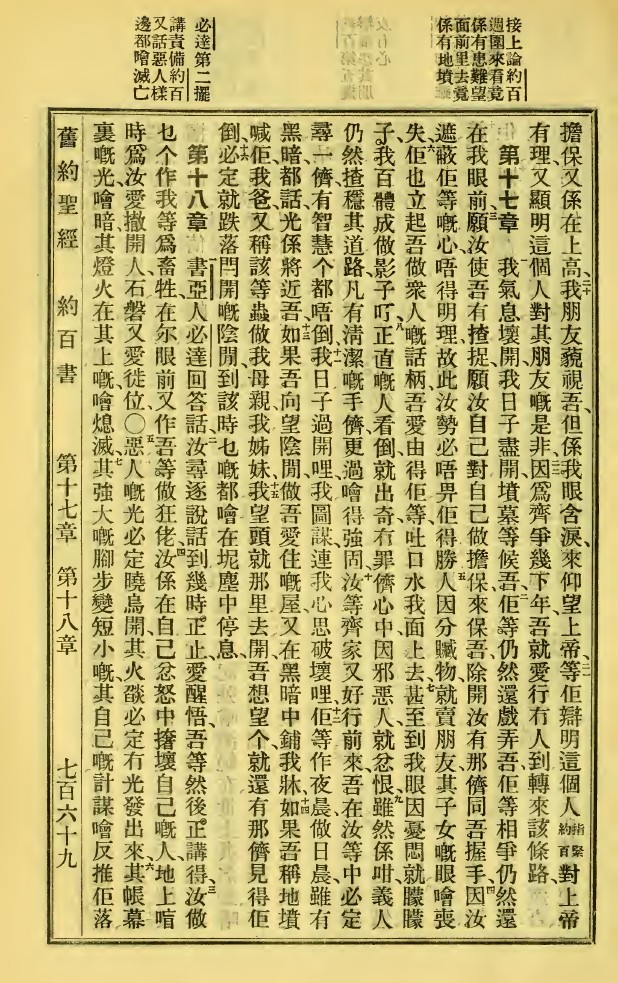 接上論約百
週圍來看竟
係有患難望
面前里去竟
係有地墳
必達第二擺
講責備約百
又話惡人樣
邊都噲滅亡
擔保又係在上高、我朋友藐視吾、但係我眼含淚來仰望上帝、等佢辯明這個人指緊約百對上帝
有理、又顯明這個人對其朋友嘅是非、因爲齊爭幾下年、吾就愛行有人到轉來該條路、
第十七章 我氣息壞開、我日子盡開、墳墓等候吾、佢等仍然還戲弄吾、佢等相爭仍然還
在我眼前、願汝使吾有揸捉、願汝自己對自己做擔保來保吾、除開汝有那儕同吾握手、因汝
遮蔽佢等嘅心唔得明理、故此汝勢必唔畀佢得勝、人因分贓物、就賣朋友、其子女嘅眼噲喪
失、佢也立起吾做衆人嘅話柄、吾愛由得佢等吐口水我面上去、甚至到我眼因憂悶就朦朦
子、我百體成做影子叮、正直嘅人看倒就出奇、有罪儕心中因邪惡人就忿恨、雖然係咁、義人
仍然揸穩其道路、凡有清潔嘅手儕更過噲得強固、汝等齊家又好行前來、吾在汝等中必定
尋一儕有智慧个都唔倒、我日子過開哩、我圖謀連我心思破壞哩、佢等作夜晨做日晨、雖有
黑暗都話光係將近、吾如果吾向望陰間、做吾愛住嘅屋、又在黑暗中鋪我牀、如果吾稱地墳
喊佢我爸、又稱該等蟲做我母親我姊妹、我望頭就那里去開、吾想望个就還有那儕見得佢
倒、必定就跌落閂開嘅陰間、到該時乜嘅都噲在坭塵中停息、
第十八章 書亞人必達回答話、汝尋逐說話到幾時正止、愛醒悟、吾等然後正講得、汝做
乜个作我等爲畜牲、在尔眼前又作吾等做狂佬、汝係在自己忿怒中撦壞自己嘅人、地上喧
時爲汝愛撤開人、石磐又愛徙位、〇惡人嘅光必定曉烏開、其火燄必定冇光發出來、其帳幕
裏嘅光噲暗、其燈火在其上嘅噲熄滅、其強大嘅腳步變短小嘅、其自己嘅計謀噲反推佢落
舊約聖經 約百書 第十七章 第十八章 七百六十九